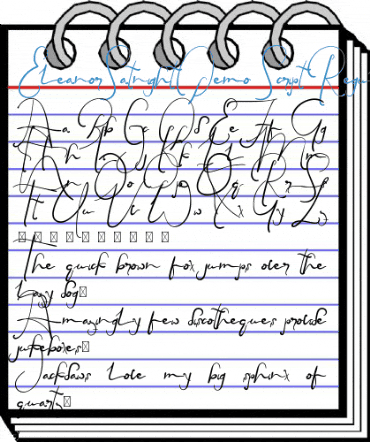 EleanorSatnight Demo Script Regu
Aa Bb Cc Dd Ee Ff Gg
Hh Ii Jj Kk Ll Mm
Nn Oo Pp Qq Rr Ss
Tt Uu Vv Ww Xx Yy Zz
The quick brown fox jumps over the
lazy dog
Amazingly few discotheques provide
jukeboxes
Jackdaws love my big sphinx of
quartz